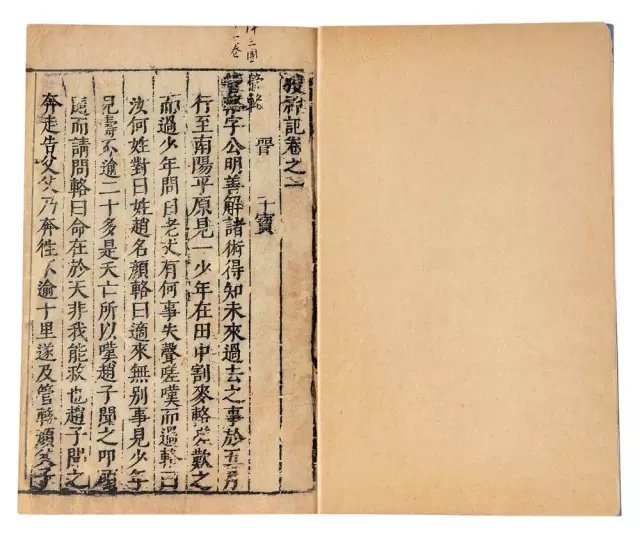 搜神記卷之一
晉 干寶
管輅
管輅字公明善解諸術得知未來過去之事於五月
行至南陽平原見一少年在田中割麥輅嗟歎之
而過少年問曰老丈有何事失聲嗟嘆而過輅曰
汝何姓對曰姓趙名顔輅曰適來無別事見少年
兄壽不逾二十多是夭亡所以嘆趙子聞之叩頭
而請問輅曰命在於天非我能救也趙子聞之
奔走告父父乃奔往不逾十里遂及管輅顔父子
三國
一卷